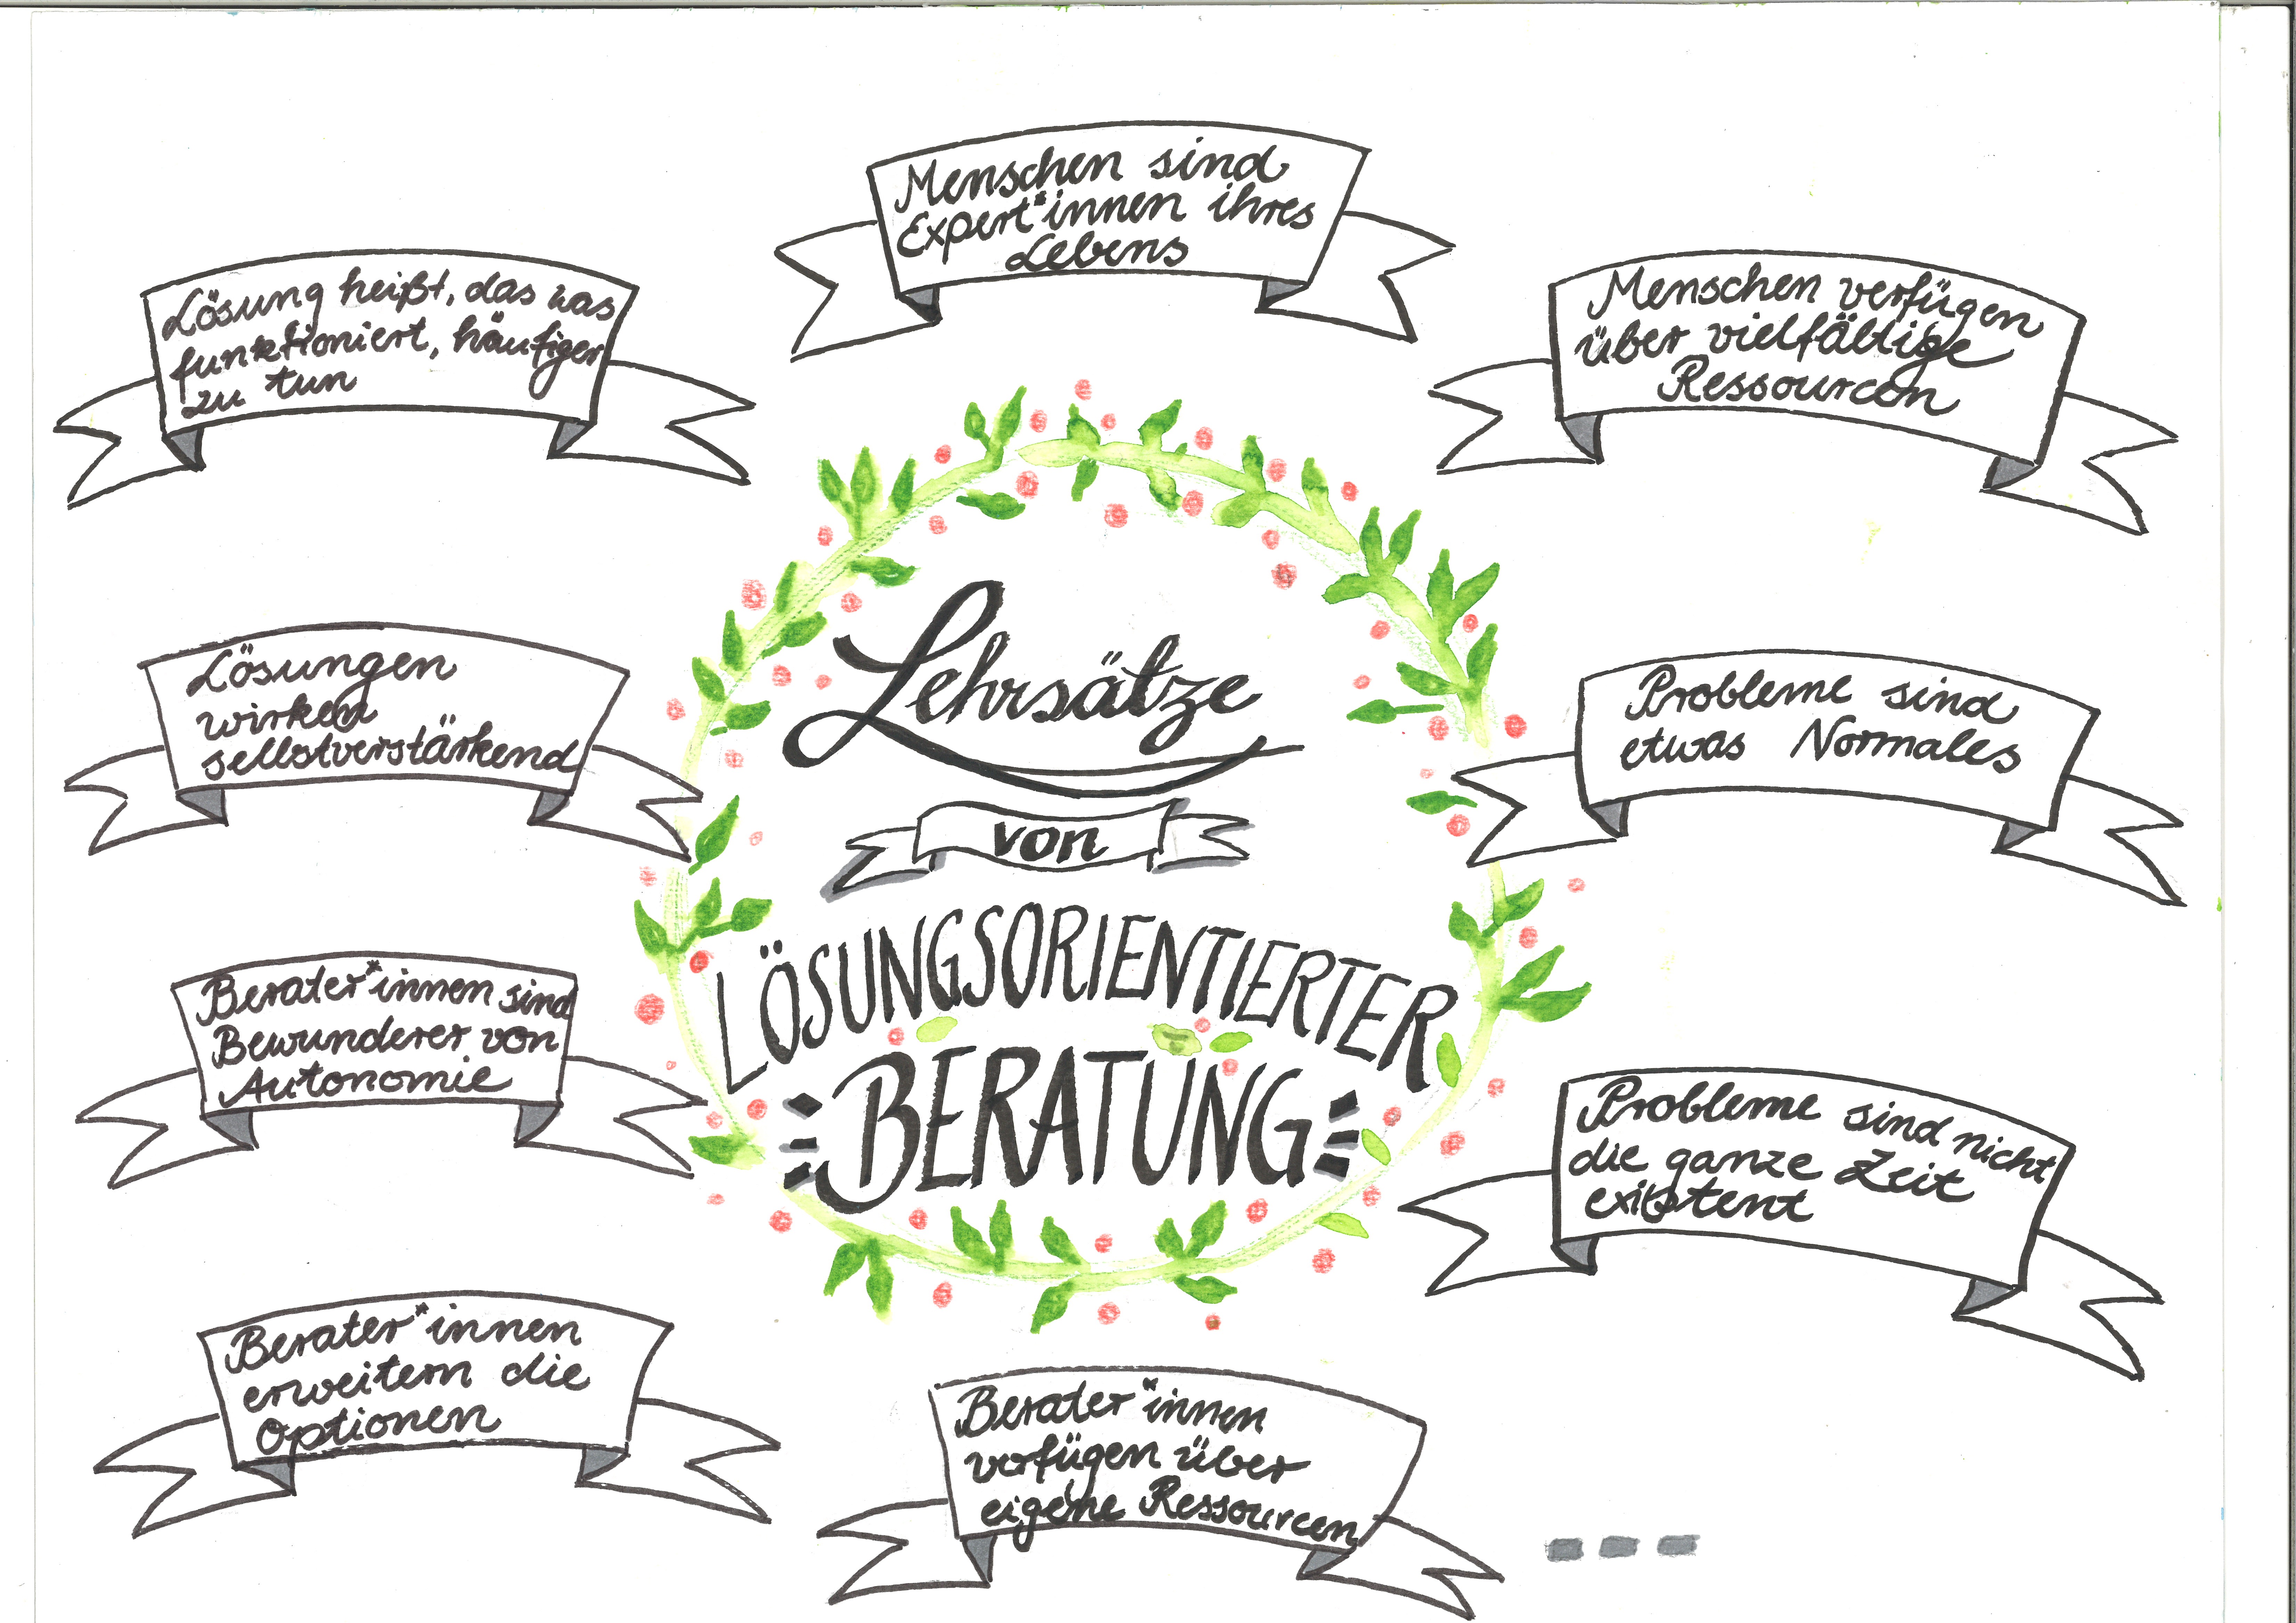 Menschen sind
Expert*innen ihres
Lebens
Lösung heißt, das was
funktioniert, häufiger
zu tun
Menschen verfügen
über vielfältige
Ressourcen
Lehrsätze
von
LÖSUNGSORIENTIERTER
BERATUNG
Lösungen
wirken
selbstverstärkend
Probleme sind
etwas Normales
Berater*innen sind
Bewunderer von
Autonomie
Probleme sind nicht
die ganze Zeit
existent
Berater*innen
erweitern die
Optionen
Berater*innen
verfügen über
eigene Ressourcen